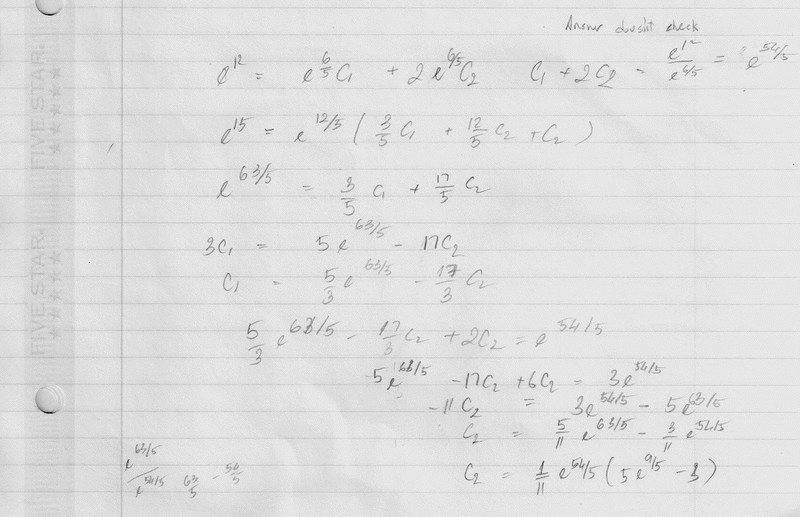 Answer doesn't check
e^12 = e^6/5 C1 + 2e^6/5 C2 C1 + 2C2 = e^12/e^6/5 = e^54/5
e^15 = e^12/5 ( 3/5 C1 + 12/5 C2 + C2 )
e^63/5 = 3/5 C1 + 17/5 C2
3C1 = 5e^63/5 - 17C2
C1 = 5/3 e^63/5 - 17/3 C2
5/3 e^63/5 - 17/3 C2 + 2C2 = e^54/5
5e^63/5 - 17C2 + 6C2 = 3e^54/5
-11C2 = 3e^54/5 - 5e^63/5
C2 = 5/11 e^63/5 - 3/11 e^54/5
C2 = 1/11 e^54/5 (5e^9/5 - 3)
e^63/5 / e^54/5 63/5 - 5/5
FIVE STAR.
FIVE STAR.